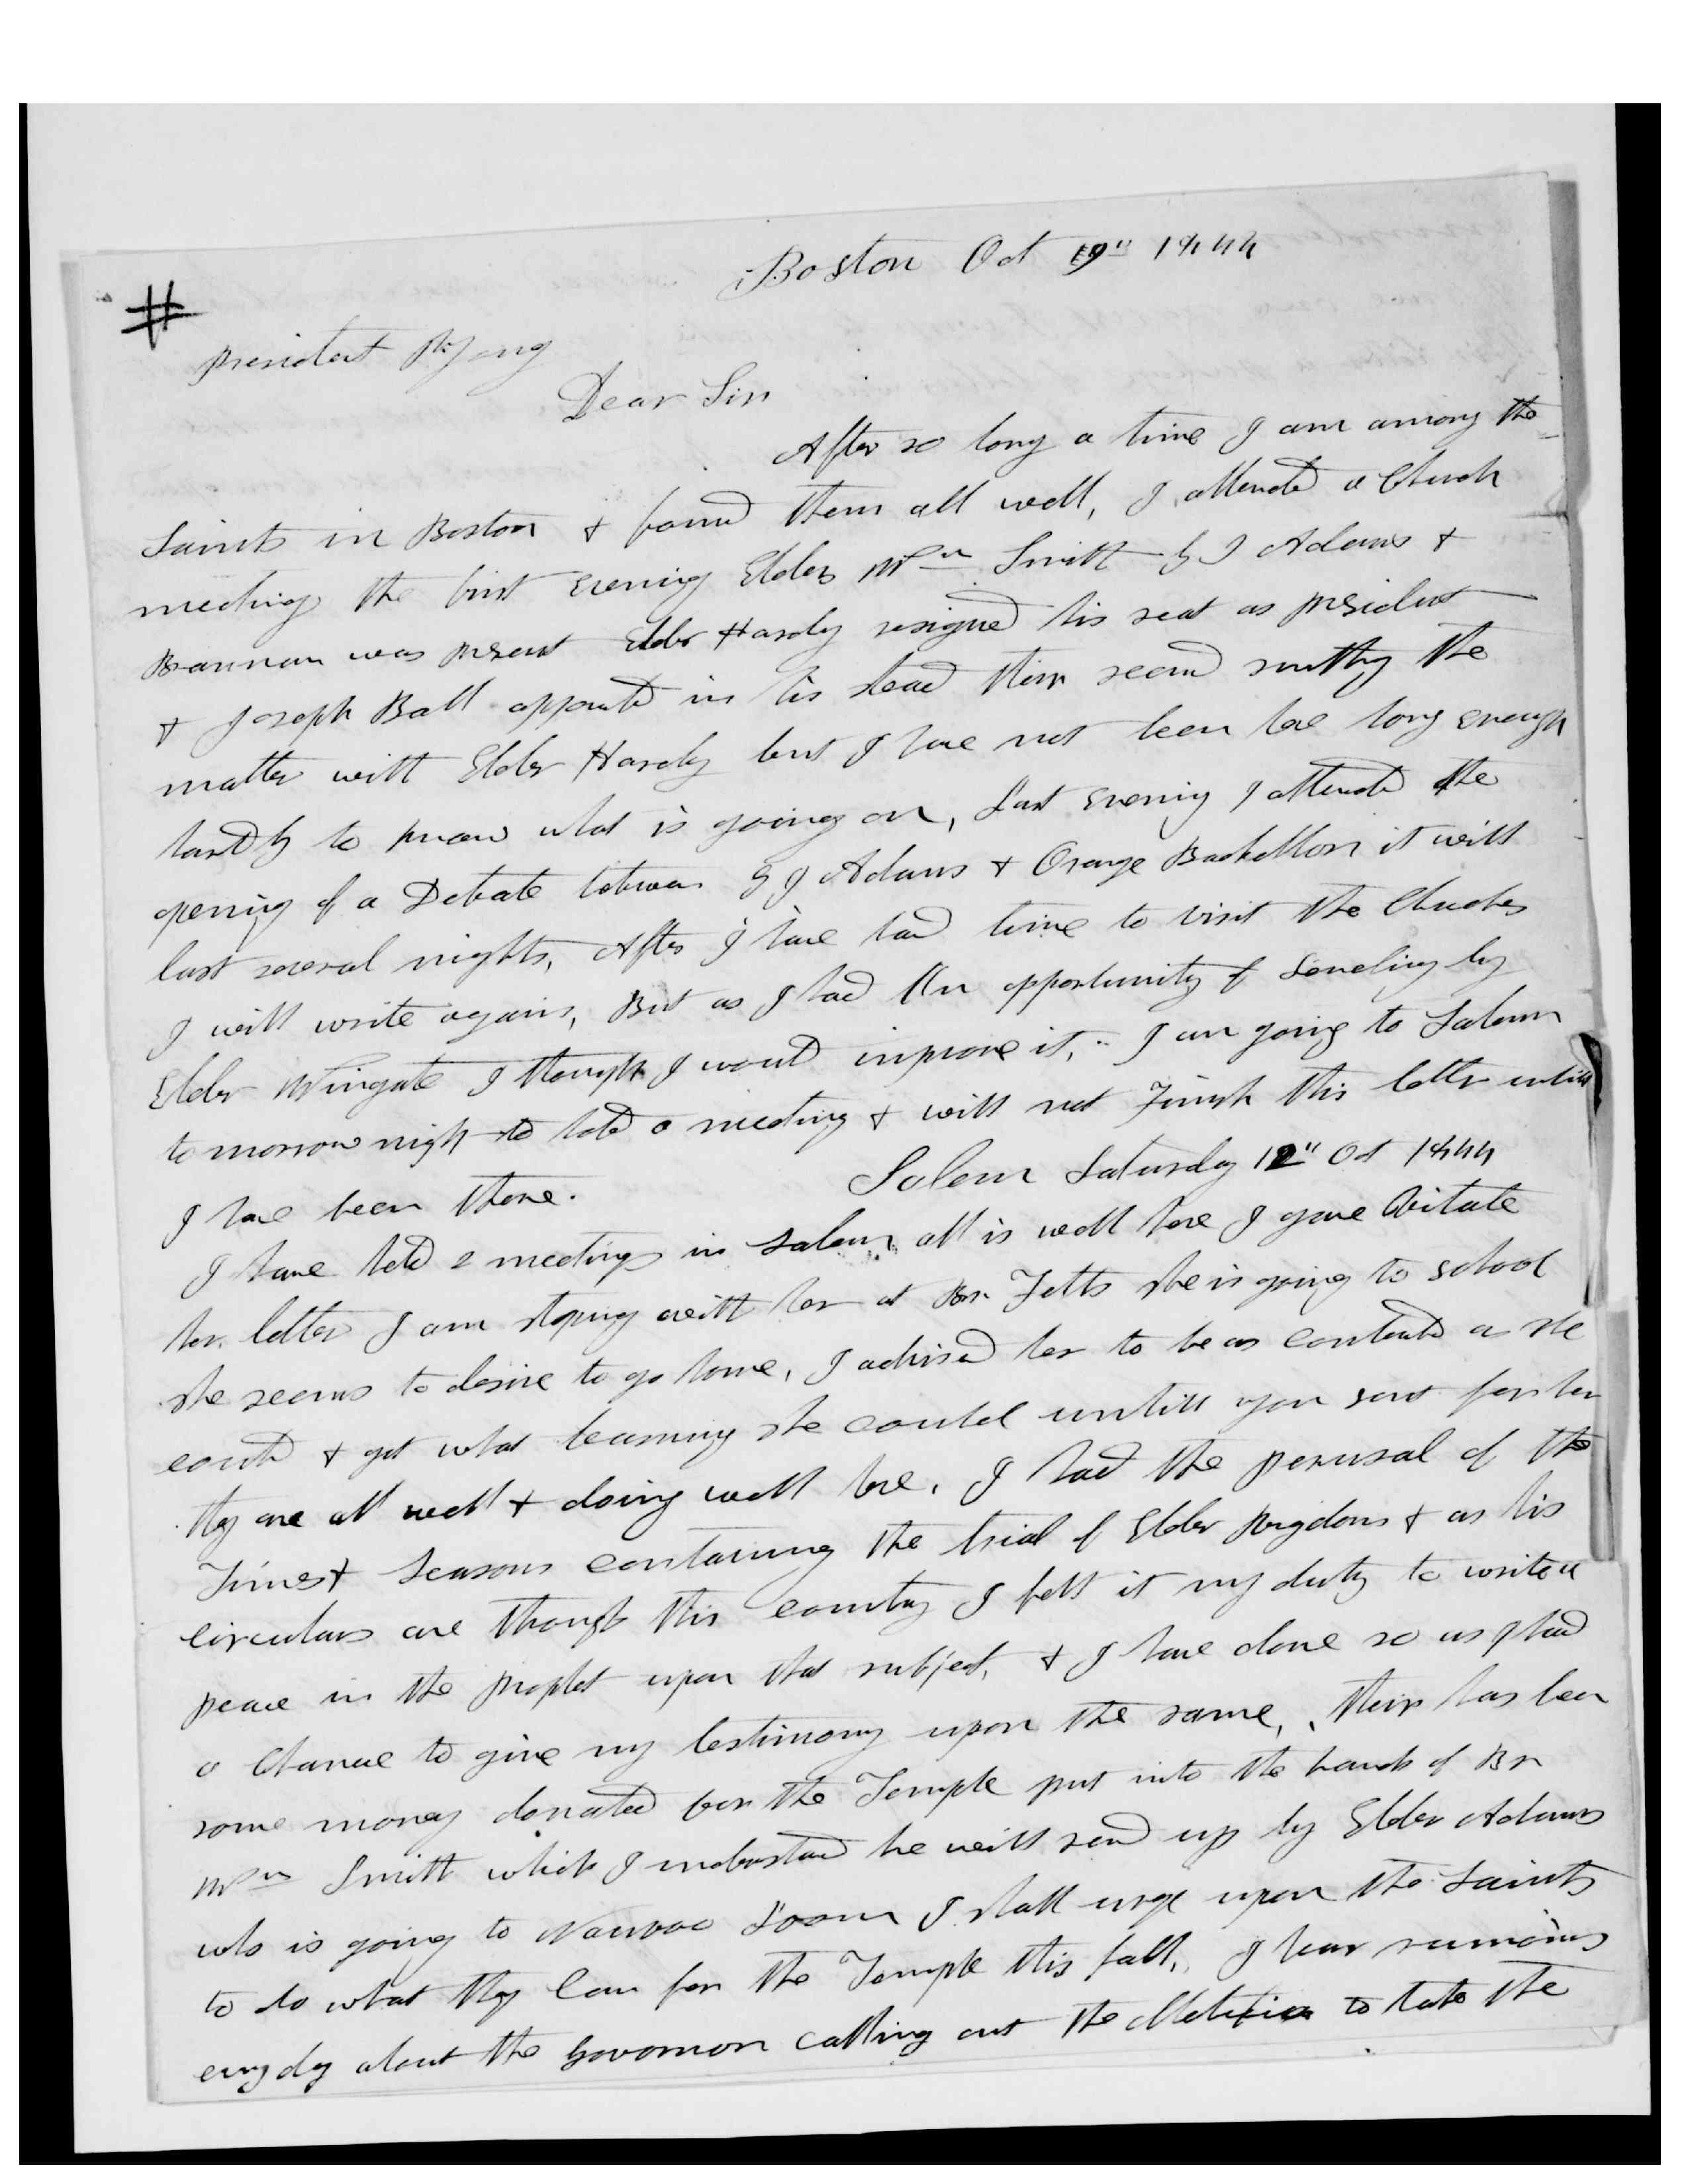 Boston Oct 9" 1844
#
President B Yong
Dear Sir
After so long a time I am among the
Saints in Boston & found them all well, I attend a Church
meeting the first evening Elders Wm Smith G J Adams &
Brannan was present Elder Hardy resigned his seat as president
& Joseph Ball appointd in his stead their seemd smthg the
matter with Elder Hardy but I have not been here long enough
hardly to know what is going on, Last evening I attended the
opening of a Debate between G J Adams & Orange Bachellor it will
last several nights, After I have had time to visit the Churches
I will write again, But as I had An opportunity of Sending by
Elder Wingate I thought I would improve it, I am going to Salem
to morrow nigh to hold a meeting & will not Finish this letter untill
I have been there.
Salem Saturday 12" Oct 1844
I have held 2 meetings in Salem all is well here I gave Vilate
her letter I am stoping with her at Br. Felts she is going to school
she seems to desire to go home, I advised her to be as contented as she
could & get what learning she could untill you sent for her
they are all well & doing well here. I had the perusal of the
Times & Seasons containing the trial of Elder Rigdons & as his
circulars are though this country I felt it my duty to write a
peace in the prophet upon that subject, & I have done so as I had
a chance to give my testimony upon the same, their has been
some money donated for the Temple put into the hands of Br
Wm Smith which I understand he will send up by Elder Adams
who is going to Nauvoo Soon I shall urge upon the Saints
to do what they can for the Temple this fall, I hear rumours
evry day about the Governor calling out the Melitia to take the